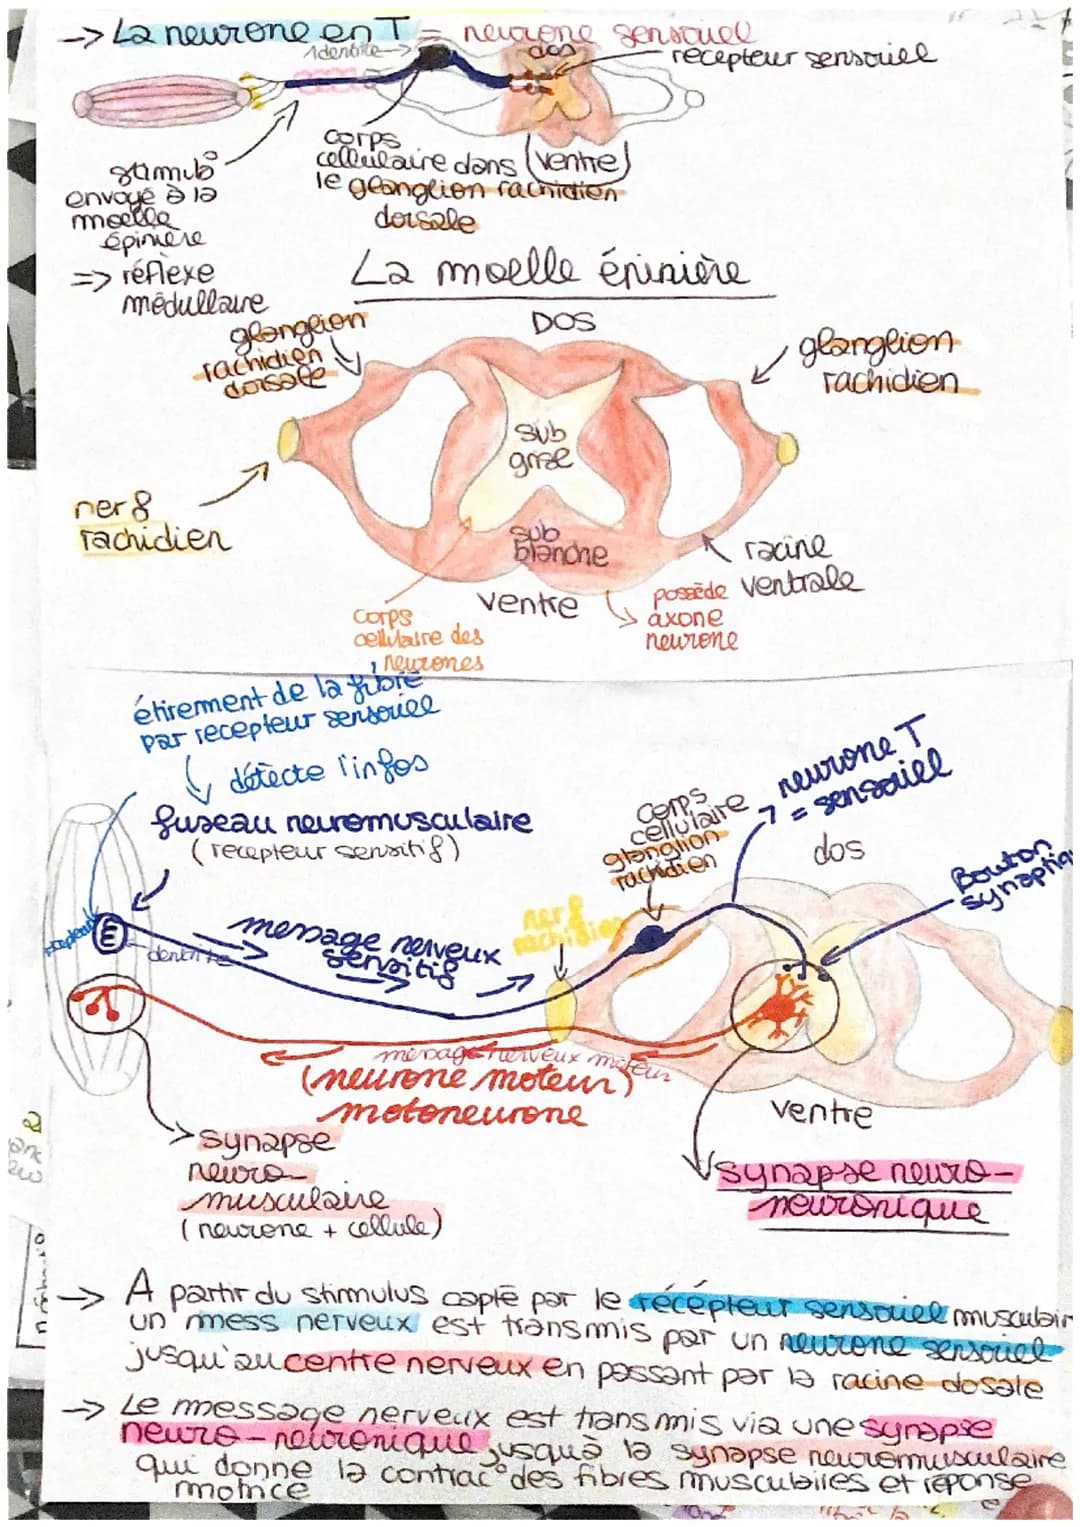 -> La neurone en T = neurone sensoriel
dos
récepteur sensoriel
corps
cellulaire dans
le glanglion rachidien
dorsale
(ventre)
stimulo
envoyé à la
moelle
épinière
=> réflexe
médullaire
La moelle épinière
DOS
glanglion
rachidien
dorsale
glanglion
rachidien
sub
grise
nerf
rachidien
sub
blanche
racine
ventrale
ventre
possède
axone
neurone
corps
cellulaire des
neurones
étirement de la fibre
par recepteur sensoriel
détecte l'infos
fuseau neuromusculaire
(recepteur sensitif)
corps
cellulaire
glanglion
rachidien
neurone T
= sensoriel
dos
Bouton
nerf
rachidien
dendrite
message nerveux
sensitif
message nerveux moteur
(neurone moteur)
motoneurone
ventre
synapse
neuro-
musculaire
(neurone + cellule)
synapse neuro-
neuronique
-> A partir du stimulus capté par le récépteur sensoriel musculair
un mess nerveux est transmis par un neurone sensoriel
jusqu'au centre nerveux en passant par la racine dosale
-> Le message nerveux est transmis via une synapse
neuro-neuronique jusquà la synapse neuromusculaire
qui donne la contrac° des fibres musculaires et réponse
motrice